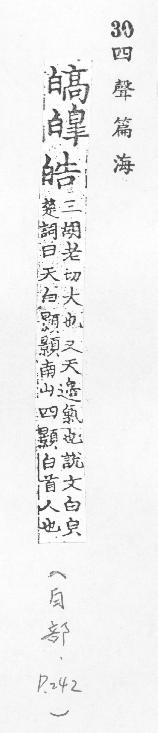 39
四聲篇海
皜皞皓
三胡老切大也又天邉氣也説文白皃
楚詞曰天白顥顥南山四顥白首人也
(白部.P.242)